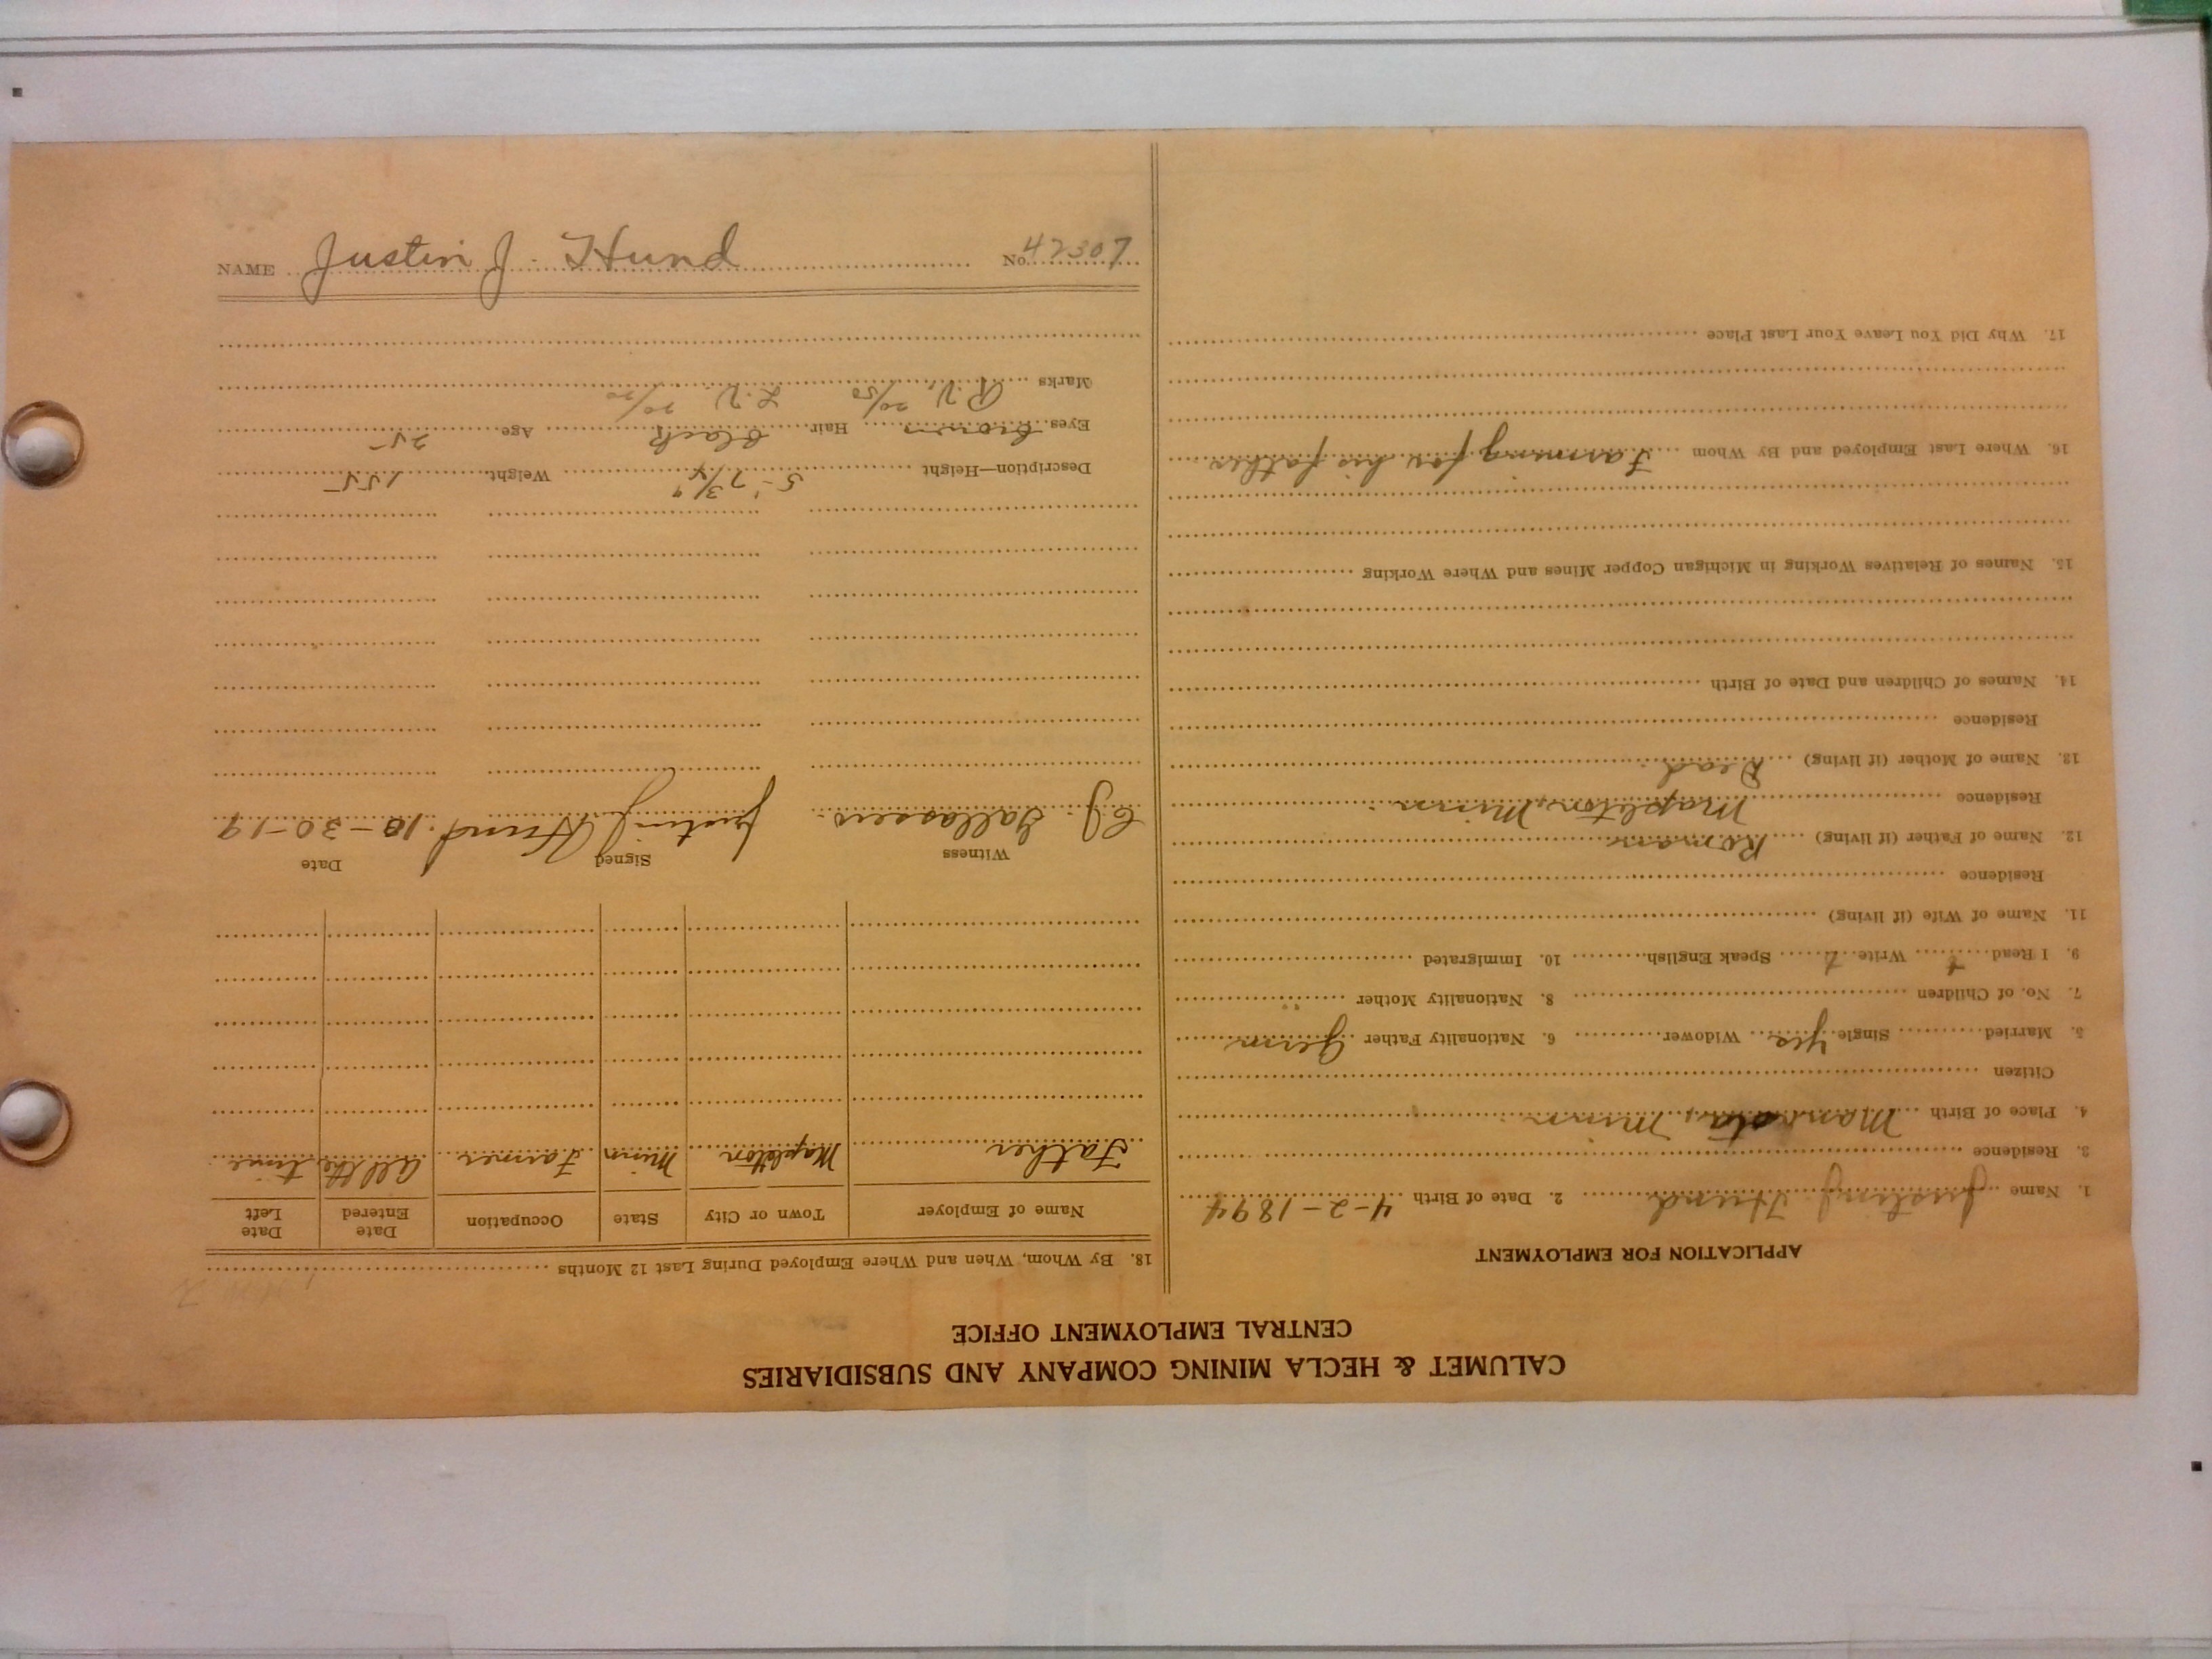 CALUMET & HECLA MINING COMPANY AND SUBSIDIARIES
CENTRAL EMPLOYMENT OFFICE
APPLICATION FOR EMPLOYMENT
1. Name Justin J. Hund 2. Date of Birth 4-2-1894
3. Residence
4. Place of Birth Mankota, Minn
Citizen
5. Married Single Yes Widower 6. Nationality Father Germ
7. No. of Children 8. Nationality Mother
9. I Read Write Speak English 10. Immigrated
11. Name of Wife (if living)
Residence
12. Name of Father (if living) Roman
Residence Mapleton, Minn
13. Name of Mother (if living) Dead
Residence
14. Names of Children and Date of Birth
15. Names of Relatives Working in Michigan Copper Mines and Where Working
16. Where Last Employed and By Whom Farming for his father
17. Why Did You Leave Your Last Place
18. By Whom, When and Where Employed During Last 12 Months
Name of Employer Town or City State Occupation Date Entered Date Left
Father Mapleton Minn Farmer all the time
Witness Signed Date
C.J. Justin J Hund. 10-30-19
Description—Height 5-7 3/4" Weight 155
Eyes brown Hair black Age 25
Marks R.V. 20/50 L.V. 20/20
NAME Justin J. Hund No. 42307